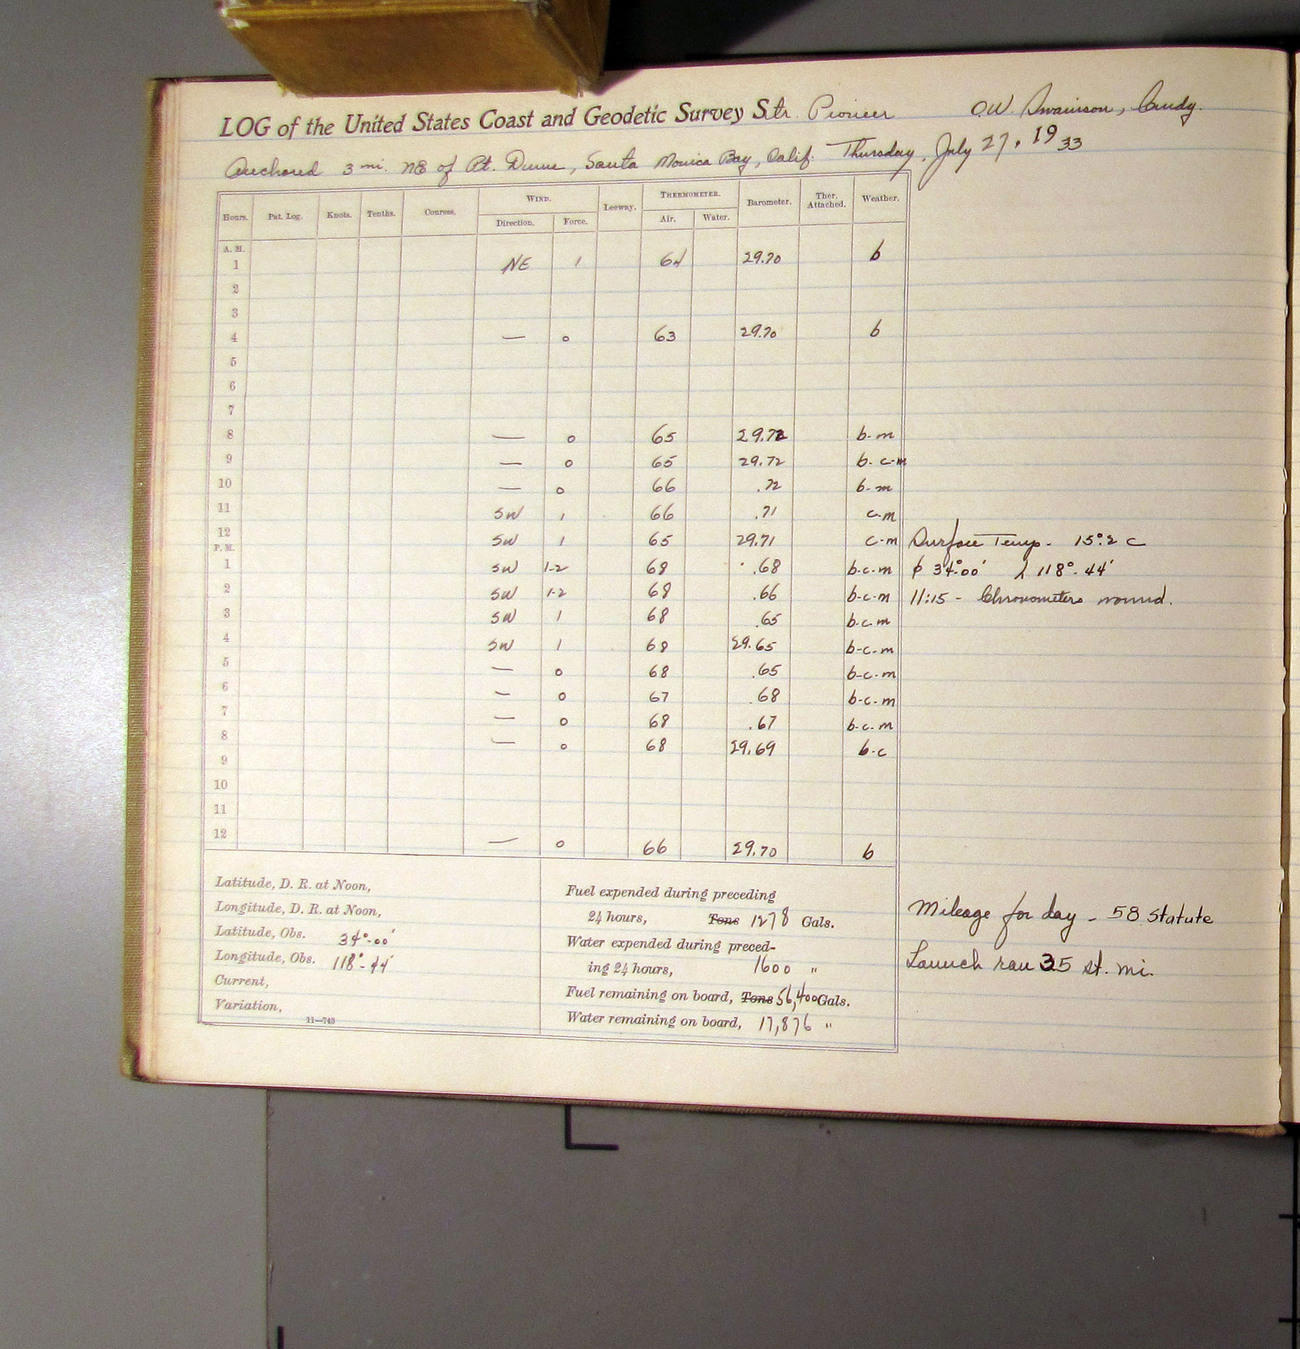 LOG of the United States Coast and Geodetic Survey Str. Pioneer O.W. Swainson, Comdg.
Anchored 3 mi. NE of Pt. Dume, Santa Monica Bay, Calif. Thursday, July 27, 1933
Hours. Pat. Log. Knots. Tenths. Courses. WIND. Direction. Force. Leeway. THERMOMETER. Air. Water. Barometer. Ther. Attached. Weather.
A. M.
1 NE 1 64 29.70 b
2
3
4 — 0 63 29.70 b
5
6
7
8 — 0 65 29.72 b-m
9 — 0 65 29.72 b-c-m
10 — 0 66 .72 b-m
11 SW 1 66 .71 c-m
12 SW 1 65 29.71 c-m Surface Temp - 15°.2 C
P. M.
1 SW 1-2 68 .68 b-c-m φ 34°-00' λ 118°-44'
2 SW 1-2 68 .66 b-c-m 11:15 - Chronometers wound.
3 SW 1 68 .65 b-c-m
4 SW 1 68 29.65 b-c-m
5 — 0 68 .65 b-c-m
6 — 0 67 .68 b-c-m
7 — 0 68 .67 b-c-m
8 — 0 68 29.69 b-c
9
10
11
12 — 0 66 29.70 b
Latitude, D. R. at Noon,
Longitude, D. R. at Noon,
Latitude, Obs. 34°-00'
Longitude, Obs. 118°-44'
Current,
Variation,
11—743
Fuel expended during preceding
24 hours, Tons 1278 Gals.
Water expended during preced-
ing 24 hours, 1600 "
Fuel remaining on board, Tons 56,400 Gals.
Water remaining on board, 17,876 "
Mileage for day - 58 statute
Launch ran 35 st. mi.